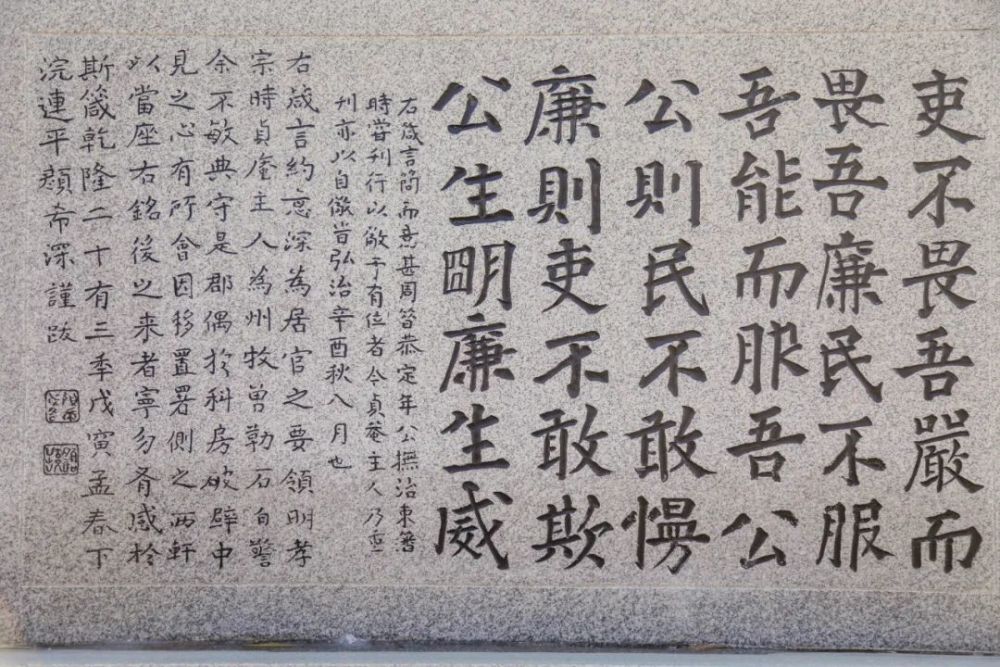 吏不畏吾嚴而
畏吾廉民不服
吾能而服吾公
公則民不敢慢
廉則吏不敢欺
公生明廉生威
右箴言簡而意甚周昔恭定年公撫治東魯
時嘗刊行以敬于有位者今貞菴主人乃重
刊亦以自儆旹弘治辛酉秋八月也
右箴言約意深為居官之要領明孝
宗時貞菴主人為州牧曾勒石自警
余不敏典守是郡偶於科房破壁中
見之心有所會因移置署側之西軒
以當座右銘後之来者寧勿有感於
斯箴乾隆二十有三季戊寅孟春下
浣連平顏希深謹跋